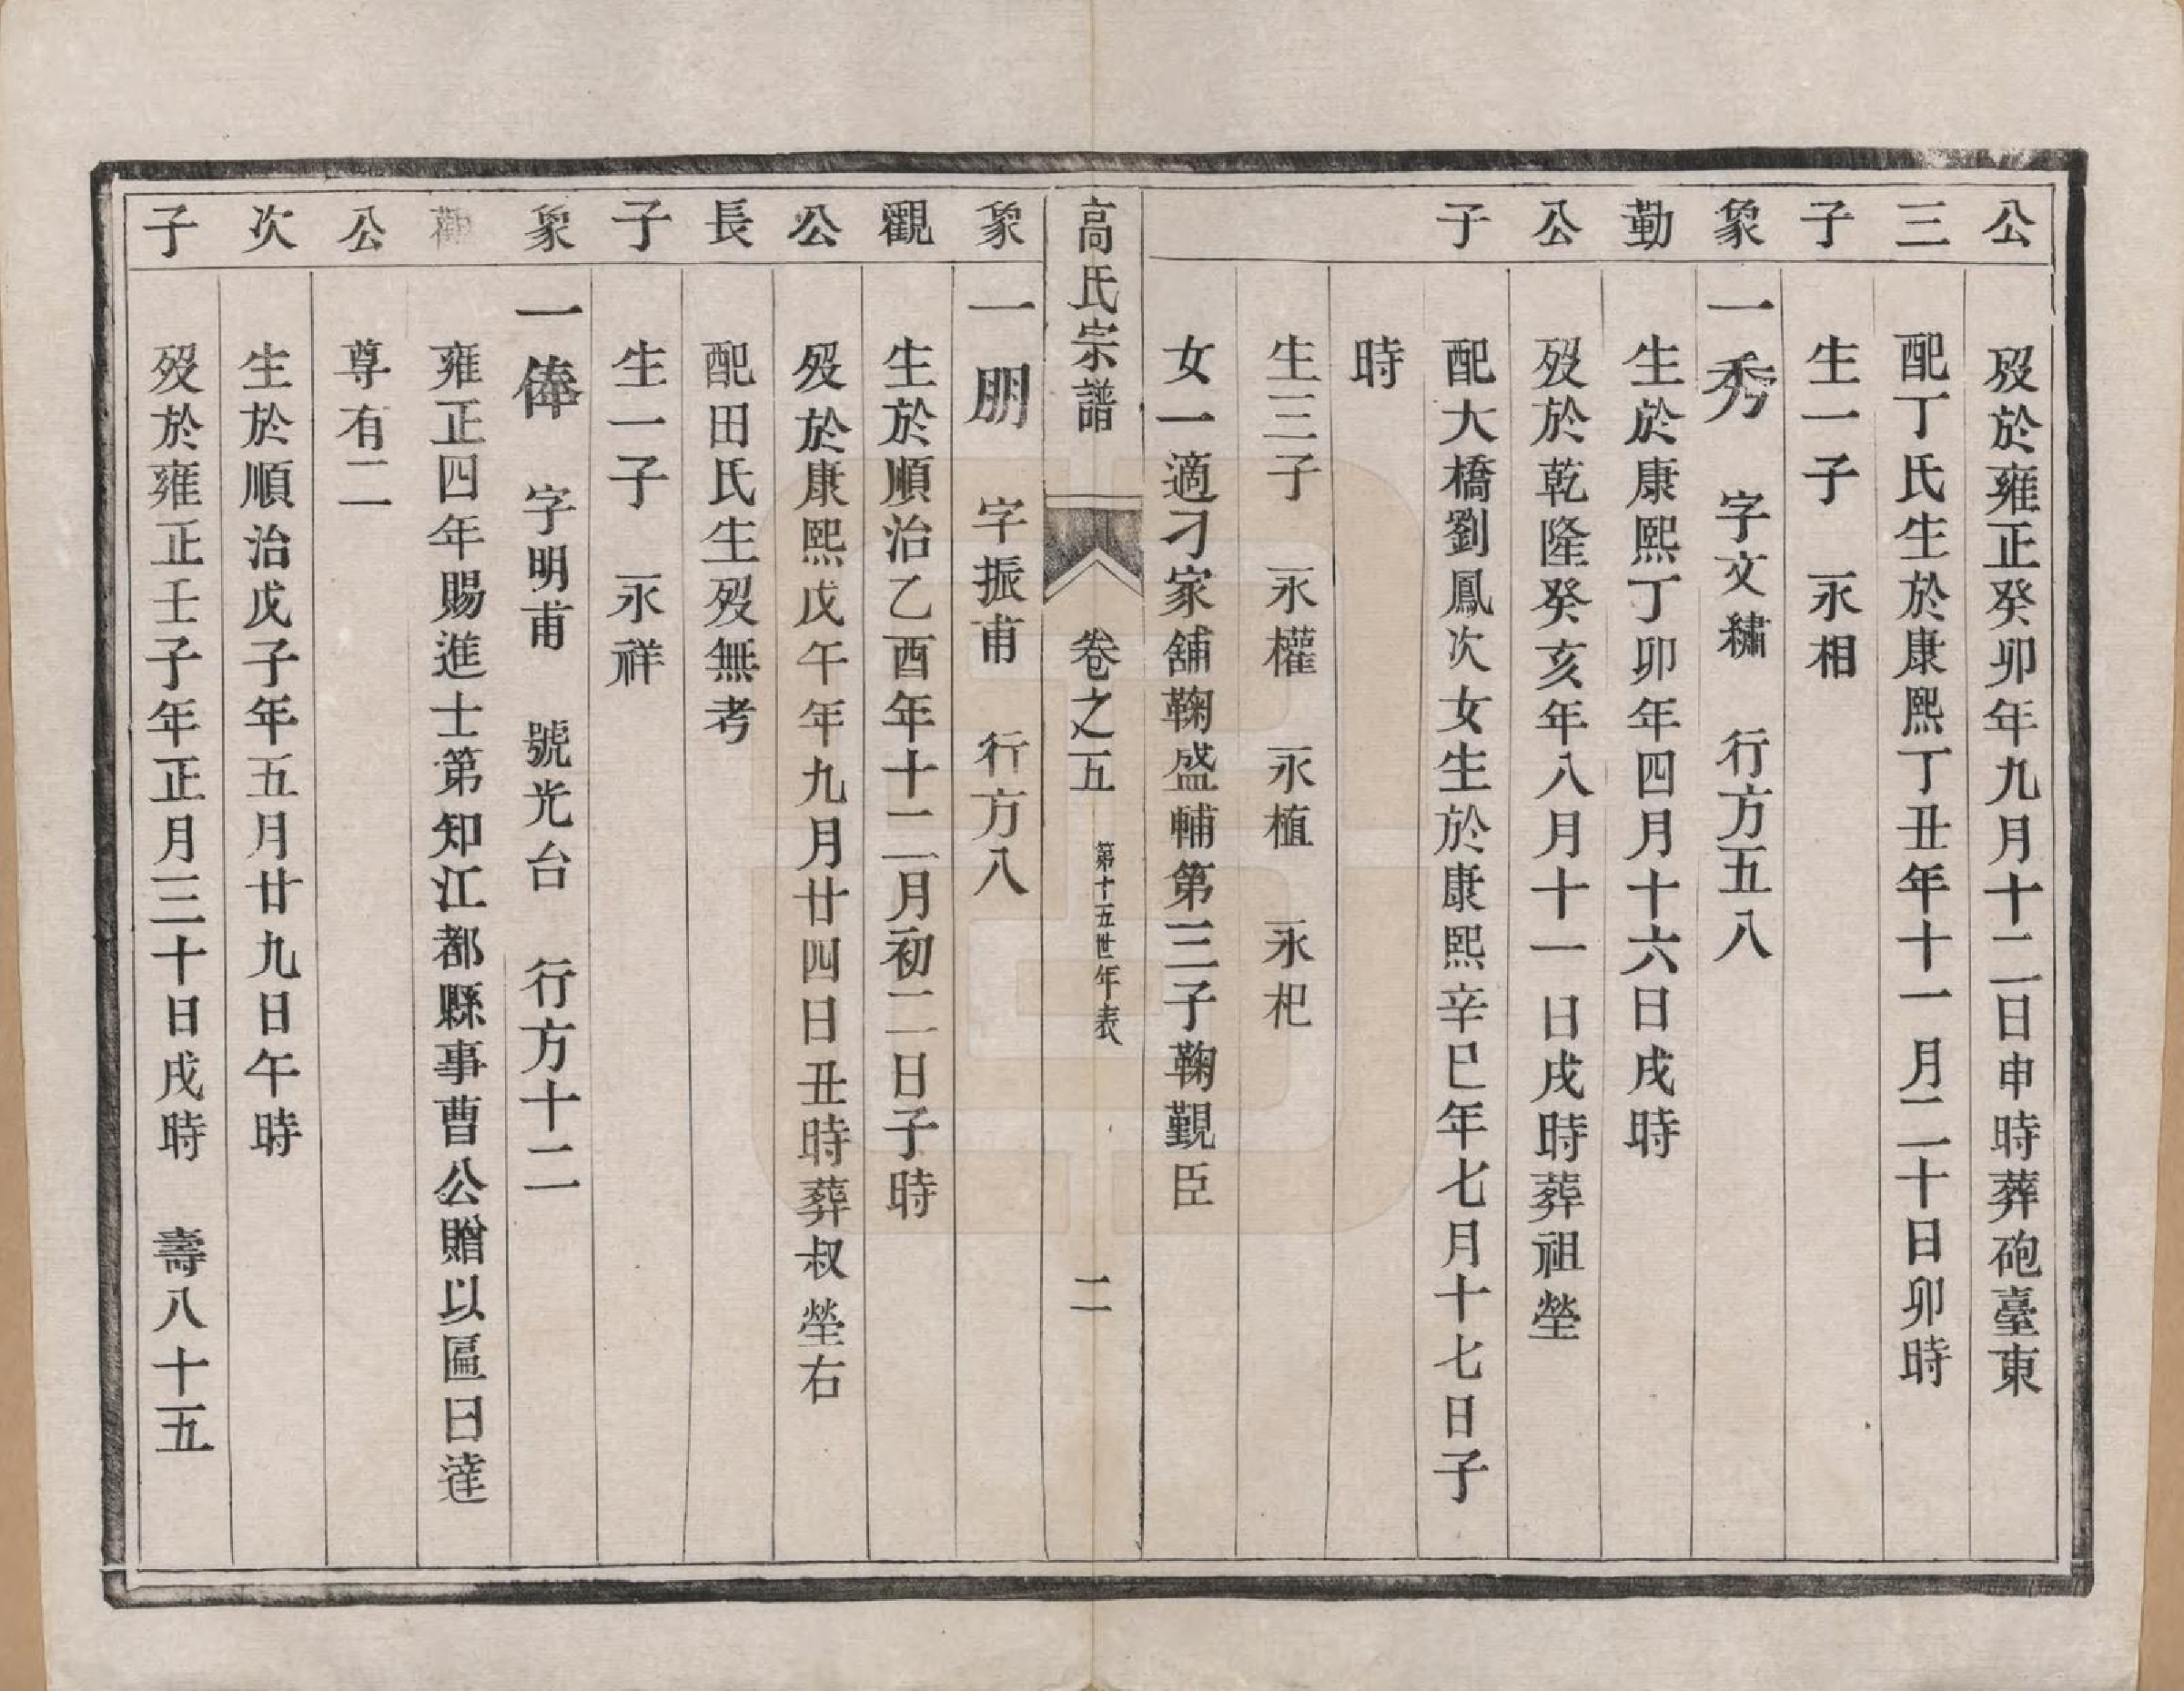 公 歿於雍正癸卯年九月十二日申時葬砲臺東
三 配丁氏生於康熙丁丑年十一月二十日卯時
子 生一子 永相
象 一秀 字文繡 行方五八
勤 生於康熙丁卯年四月十六日戌時
公 歿於乾隆癸亥年八月十一日戌時葬祖塋
子 配大橋劉鳳次女生於康熙辛巳年七月十七日子
時
生三子 永權 永植 永杞
女一適刁家舖鞠盛輔第三子鞠覲臣
高氏宗譜 卷之五 第十五世年表 二
象 一朋 字振甫 行方八
觀 生於順治乙酉年十二月初二日子時
公 歿於康熙戊午年九月廿四日丑時葬叔塋右
長 配田氏生歿無考
子 生一子 永祥
象 一俸 字明甫 號光台 行方十二
觀 雍正四年賜進士第知江都縣事曹公贈以匾曰達
公 尊有二
次 生於順治戊子年五月廿九日午時
子 歿於雍正壬子年正月三十日戌時 壽八十五